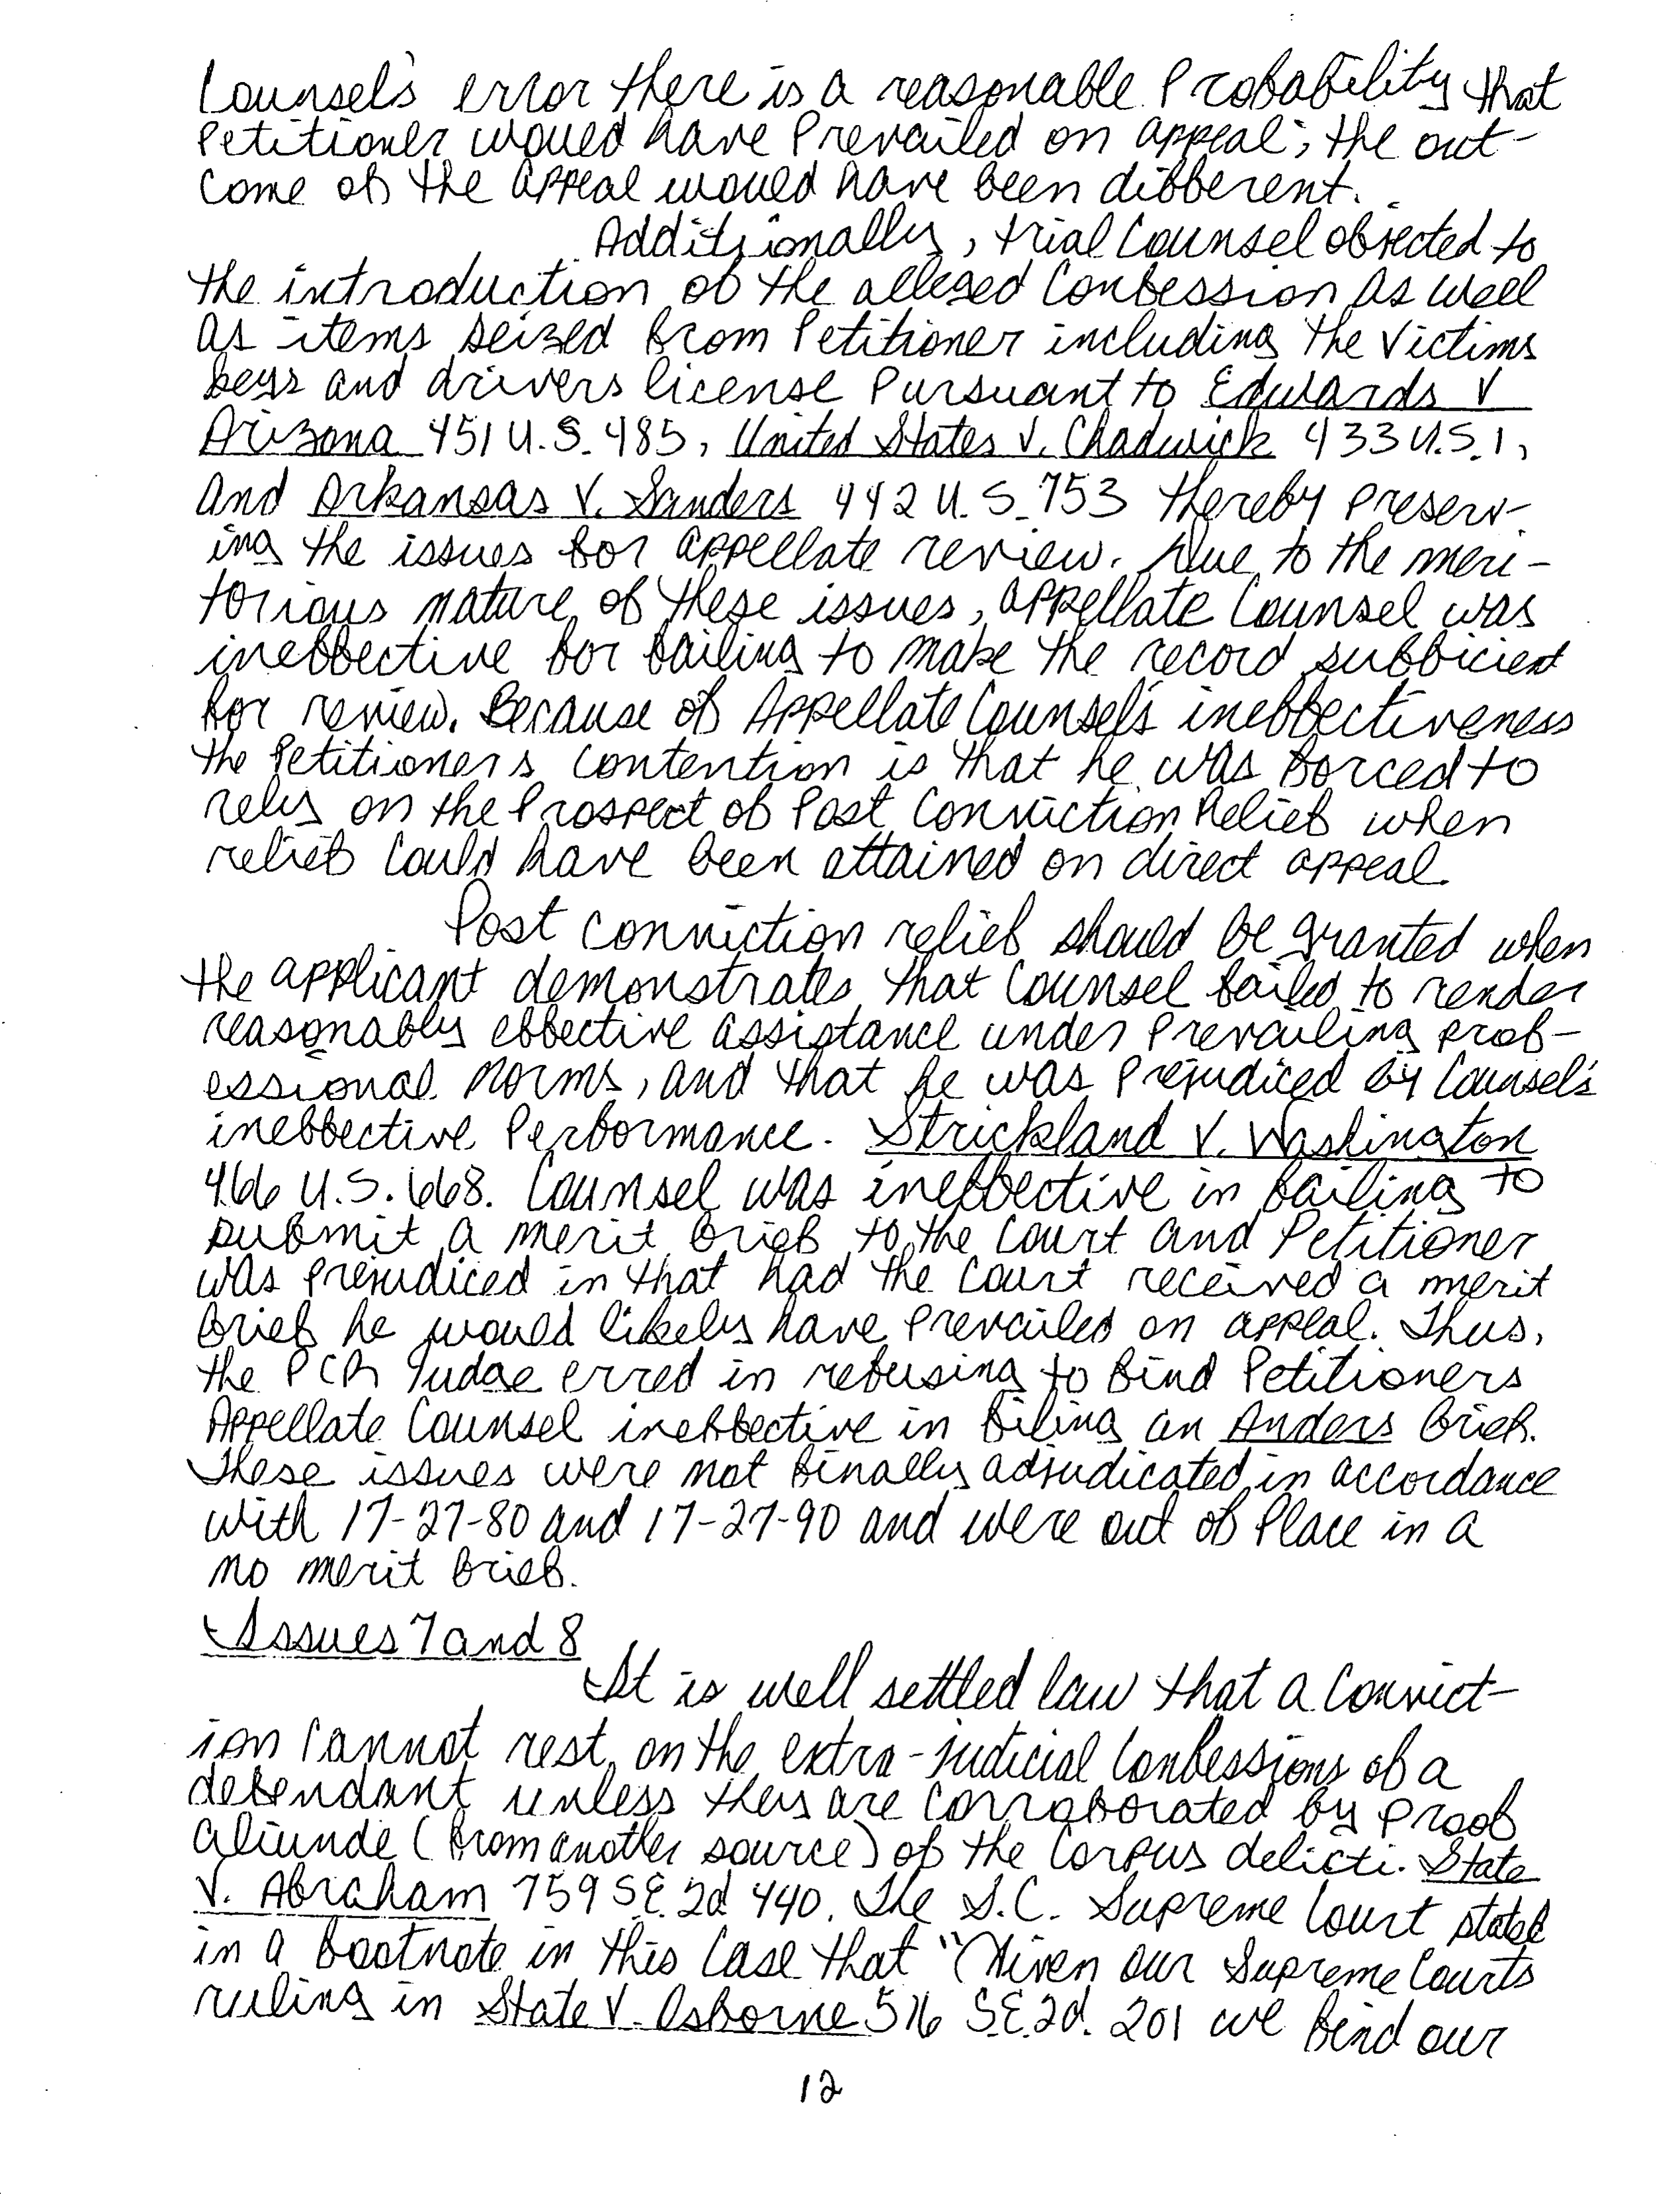 Counsel's error there is a reasonable Probability that
Petitioner would have Prevailed on appeal; the out-
come of the appeal would have been different.
Additionally, trial Counsel objected to
the introduction of the alleged Confession as well
as items seized from Petitioner including the Victims
keys and drivers license Pursuant to Edwards V
Arizona 451 U.S. 485, United States V. Chadwick 433 U.S. 1,
and Arkansas V. Sanders 442 U.S. 753 thereby preserv-
ing the issues for appellate review. Due to the meri-
torious nature of these issues, appellate Counsel was
ineffective for failing to make the record sufficient
for review. Because of Appellate Counsel's ineffectiveness
the Petitioners contention is that he was forced to
rely on the Prospect of Post Conviction Relief when
relief could have been attained on direct appeal.
Post conviction relief should be granted when
the applicant demonstrates that Counsel failed to render
reasonably effective assistance under Prevailing prof-
essional norms, and that he was Prejudiced by Counsel's
ineffective Performance. Strickland V. Washington
466 U.S. 668. Counsel was ineffective in failing to
submit a merit brief to the Court and Petitioner
was prejudiced in that had the court received a merit
brief he would likely have prevailed on appeal. Thus,
the PCR Judge erred in refusing to find Petitioners
Appellate Counsel ineffective in filing an Anders brief.
These issues were not finally adjudicated in accordance
with 17-27-80 and 17-27-90 and were out of Place in a
no merit brief.
Issues 7 and 8
It is well settled law that a convict-
ion cannot rest on the extra-judicial Confessions of a
defendant unless they are corroborated by proof
aliunde (from another source) of the Corpus delicti. State
V. Abraham 759 S.E. 2d 440. The S.C. Supreme Court stated
in a footnote in this case that "Given our Supreme Courts
ruling in State V. Osborne 516 S.E. 2d. 201 we find our
12